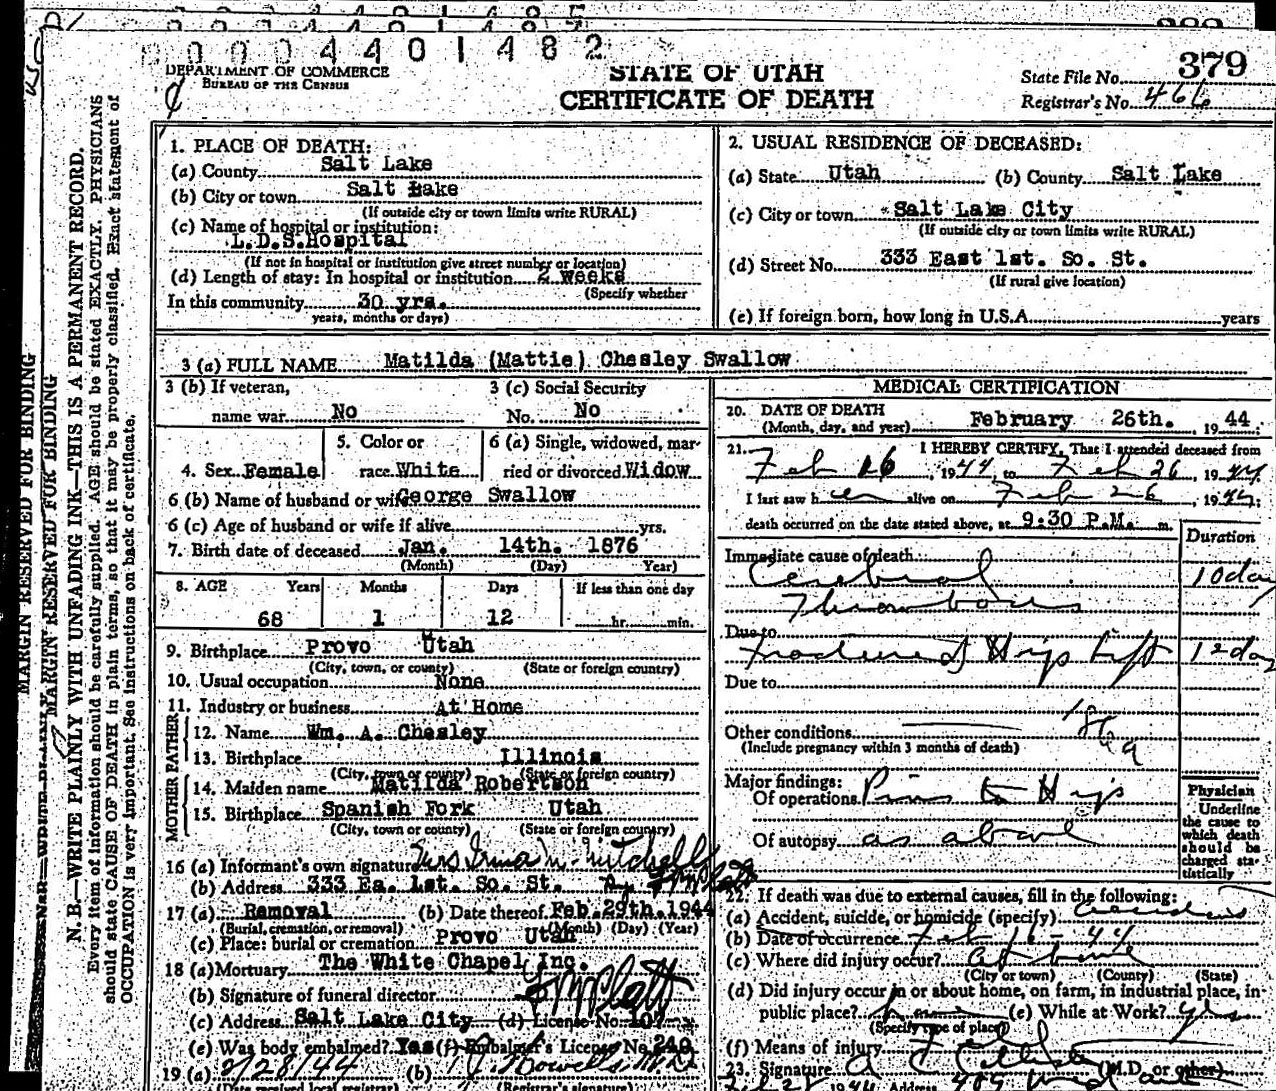 0 0 0 4 4 0 1 4 8 2
DEPARTMENT OF COMMERCE
BUREAU OF THE CENSUS
STATE OF UTAH
CERTIFICATE OF DEATH
State File No. 379
Registrar's No. 466
MARGIN RESERVED FOR BINDING
MARGIN RESERVED FOR BINDING
N. B.—WRITE PLAINLY WITH UNFADING INK—THIS IS A PERMANENT RECORD.
Every item of information should be carefully supplied. AGE should be stated EXACTLY. PHYSICIANS
should state CAUSE OF DEATH in plain terms, so that it may be properly classified. Exact statement of
OCCUPATION is very important. See instructions on back of certificate.
1. PLACE OF DEATH:
(a) County Salt Lake
(b) City or town Salt Lake
(If outside city or town limits write RURAL)
(c) Name of hospital or institution:
L.D.S.Hospital
(If not in hospital or institution give street number or location)
(d) Length of stay: In hospital or institution 2 weeks
(Specify whether
In this community 30 yrs.
years, months or days)
2. USUAL RESIDENCE OF DECEASED:
(a) State Utah (b) County Salt Lake
(c) City or town Salt Lake City
(If outside city or town limits write RURAL)
(d) Street No. 333 East 1st. So. St.
(If rural give location)
(e) If foreign born, how long in U.S.A. years
3 (a) FULL NAME Matilda (Mattie) Chesley Swallow
3 (b) If veteran, name war No
3 (c) Social Security No. No
4. Sex Female
5. Color or race White
6 (a) Single, widowed, married or divorced Widow
6 (b) Name of husband or wife George Swallow
6 (c) Age of husband or wife if alive yrs.
7. Birth date of deceased Jan. 14th. 1876
(Month) (Day) Year)
8. AGE Years Months Days If less than one day
68 1 12 hr. min.
9. Birthplace Provo Utah
(City, town, or county) (State or foreign country)
10. Usual occupation None
11. Industry or business At Home
FATHER
12. Name Wm. A. Chesley
13. Birthplace Illinois
(City, town or county) (State or foreign country)
MOTHER
14. Maiden name Matilda Robertson
15. Birthplace Spanish Fork Utah
(City, town or county) (State or foreign country)
16 (a) Informant's own signature Mrs Irma M. Mitchell
(b) Address 333 Ea. 1st. So. St.
17 (a) Removal (b) Date thereof Feb.29th.1944
(Burial, cremation, or removal) (Month) (Day) (Year)
(c) Place: burial or cremation Provo Utah
18 (a) Mortuary The White Chapel Inc.
(b) Signature of funeral director
(c) Address Salt Lake City (d) License No. 107
(e) Was body embalmed? Yes (f) Embalmer's License No. 240
19 (a) 2/28/44 (b)
(Date received local registrar) (Registrar's signature)
MEDICAL CERTIFICATION
20. DATE OF DEATH
(Month, day, and year) February 26th. 1944
21. I HEREBY CERTIFY, That I attended deceased from
Feb 16, 1944, to Feb 26, 1944.
I last saw her alive on Feb 26, 1944;
death occurred on the date stated above, at 9:30 P.M. m.
Duration
Immediate cause of death
Cerebral 10 day
Thrombosis
Due to
Fractured Hip Left 12 day
Due to
Other conditions
(Include pregnancy within 3 months of death)
186a
Major findings:
Of operations Pins to Hip
Of autopsy as above
Physician
Underline
the cause to
which death
should be
charged sta-
tistically
22. If death was due to external causes, fill in the following:
(a) Accident, suicide, or homicide (specify)
(b) Date of occurrence Feb 16 - 44
(c) Where did injury occur? at home
(City or town) (County) (State)
(d) Did injury occur in or about home, on farm, in industrial place, in
public place? (e) While at Work? yes
(Specify type of place)
(f) Means of injury Fall
23. Signature (M.D. or other)
Address